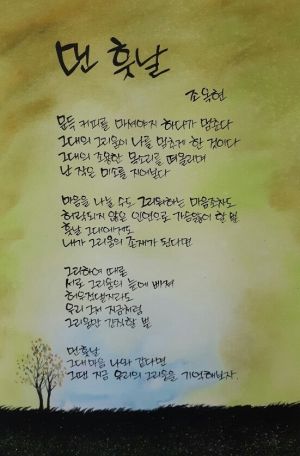 먼 훗날
조옥현
문득 커피를 마셔야지 하다가 멈춘다
그대의 그리움이 나를 멈추게 한 것이다
그대의 조용한 목소리를 떠올리며
난 작은 미소를 지어낸다
마음을 나눌 수도 그리워하는 마음조차도
허락되지 않은 인연으로 가슴앓이 할 뿐
훗날 그대에게도
내가 그리움의 존재가 된다면
그리하여 때론
서로 그리움의 늪에 빠져
허우적댈지라도
우리 그저 지금처럼
그리움만 간직할 뿐
먼 훗날
그대 마음 나와 같다면
그땐 지금 우리의 그리움을 기억해내자.